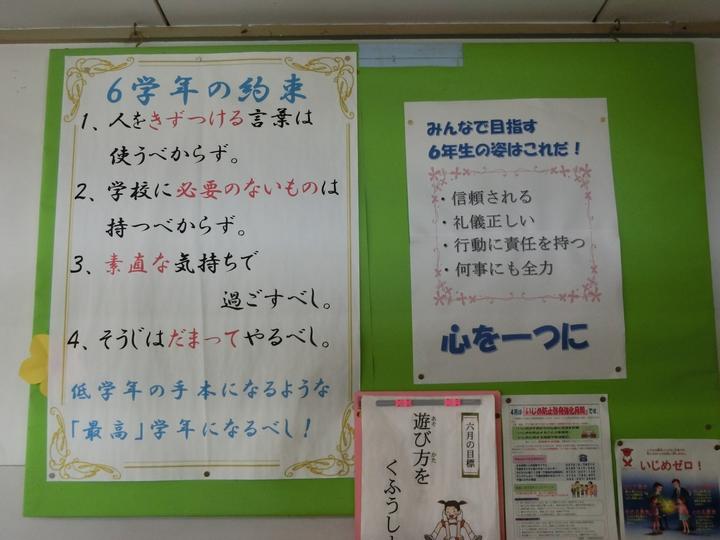 6学年の約束
1、人をきずつける言葉は
使うべからず。
2、学校に必要のないものは
持つべからず。
3、素直な気持ちで
過ごすべし。
4、そうじはだまってやるべし。
低学年の手本になるような
「最高」学年になるべし！
みんなで目指す
6年生の姿はこれだ！
・信頼される
・礼儀正しい
・行動に責任を持つ
・何事にも全力
心を一つに
六月の目標
遊び方を
くふうし
4月は「いじめ防止啓発強化月間」です。
いじめゼロ！